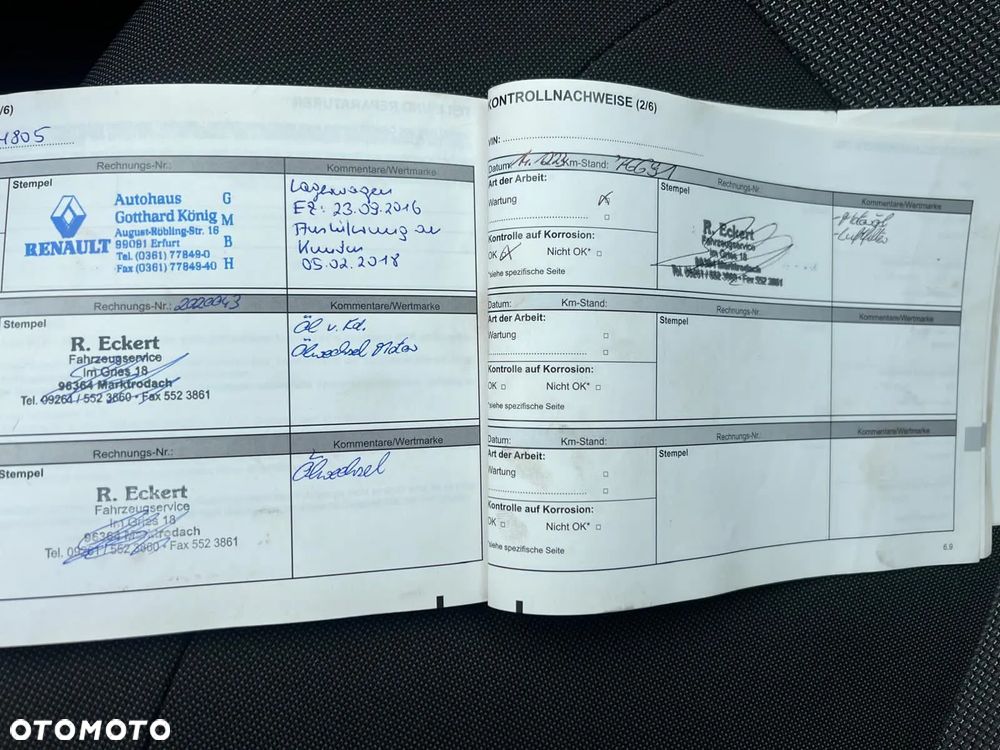 /6)
4805
Rechnungs-Nr.:
Kommentare/Wertmarke
Stempel
RENAULT
Autohaus
Gotthard König
August-Röbling-Str. 16
99091 Erfurt
Tel. (0361) 77849-0
Fax (0361) 77849-40
G
M
B
H
Lagerwagen
EZ: 23.09.2016
Auslieferung an
Kunden
05.02.2018
Rechnungs-Nr.: 2020043
Kommentare/Wertmarke
Stempel
R. Eckert
Fahrzeugservice
Im Gries 18
96364 Marktrodach
Tel. 09261 / 552 3860 • Fax 552 3861
Öl v. Kd.
Ölwechsel Motor
Rechnungs-Nr.:
Kommentare/Wertmarke
Stempel
R. Eckert
Fahrzeugservice
Im Gries 18
96364 Marktrodach
Tel. 09261 / 552 3860 • Fax 552 3861
Ölwechsel
KONTROLLNACHWEISE (2/6)
VIN:
Datum:
Km-Stand:
Rechnungs-Nr.:
Kommentare/Wertmarke
Art der Arbeit:
Wartung
Kontrolle auf Korrosion:
OK
Nicht OK*
*siehe spezifische Seite
Stempel
R. Eckert
Fahrzeugservice
Im Gries 18
96364 Marktrodach
Tel. 09261 / 552 3860 • Fax 552 3861
-Motoröl
-Luftfilter
Datum:
Km-Stand:
Rechnungs-Nr.:
Kommentare/Wertmarke
Art der Arbeit:
Wartung
Kontrolle auf Korrosion:
OK
Nicht OK*
*siehe spezifische Seite
Stempel
Datum:
Km-Stand:
Rechnungs-Nr.:
Kommentare/Wertmarke
Art der Arbeit:
Wartung
Kontrolle auf Korrosion:
OK
Nicht OK*
*siehe spezifische Seite
Stempel
6.9
OTOMOTO